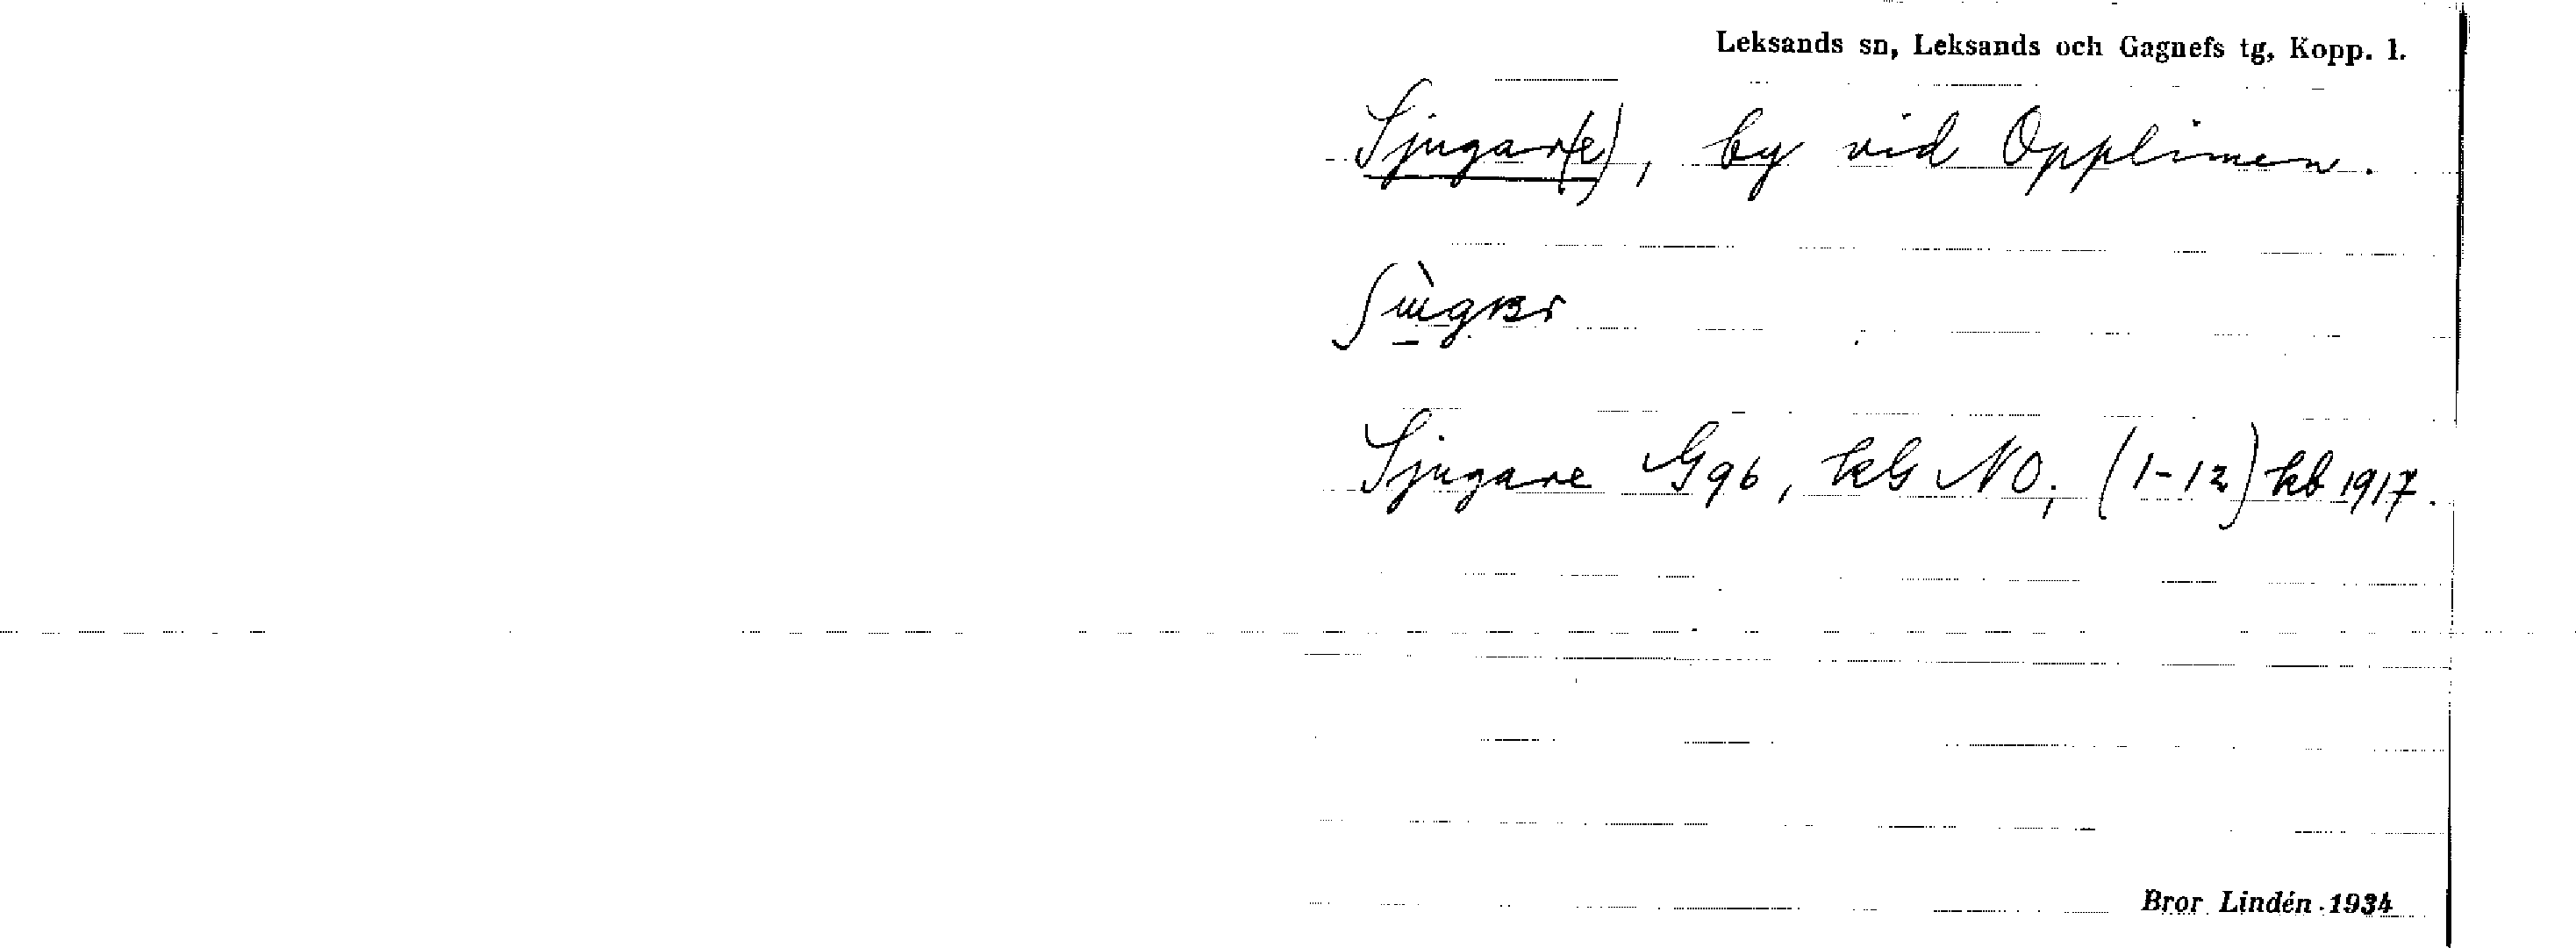 Leksands sn, Leksands och Gagnefs tg, Kopp. l.
Sjugar(e), by vid Opplimen.
Sjugare G96, kb NO; (1-12) kb 1917.
Bror Lindén 1934